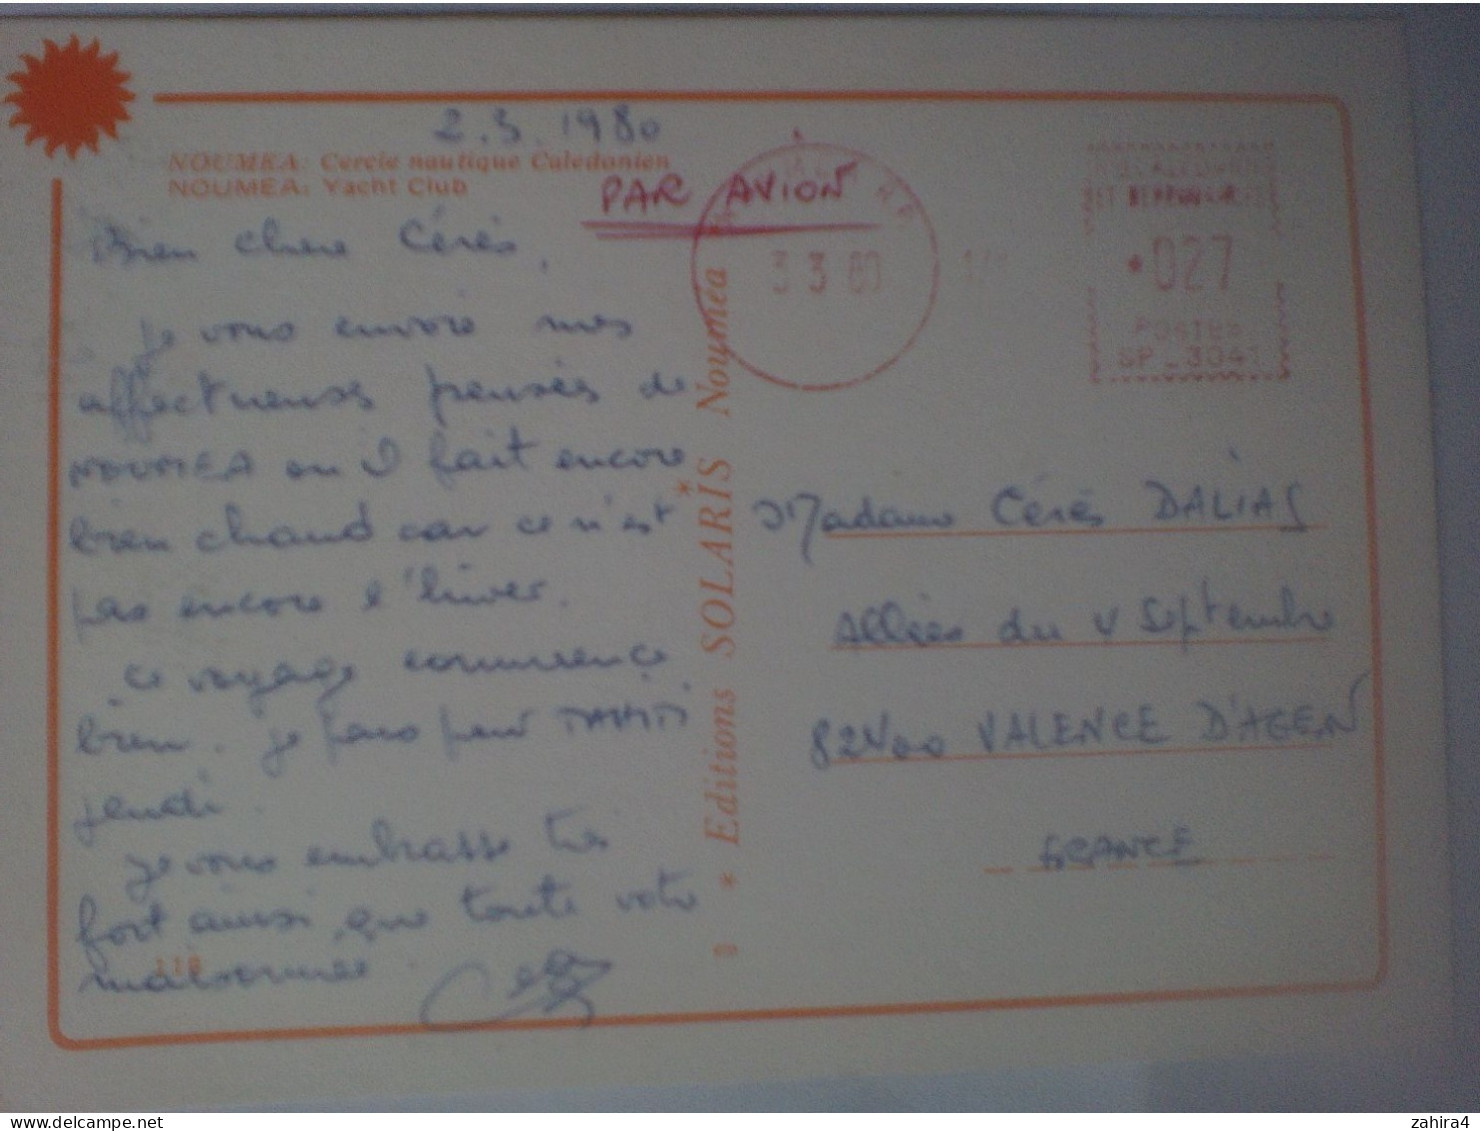 2.3.1980
NOUMEA: Cercle nautique Caledonien
NOUMEA: Yacht Club
PAR AVION
Bien chere Cérès,
je vous envoie mes
affectueuses pensées de
NOUMEA ou il fait encore
bien chaud car ce n'est
pas encore l'hiver.
ce voyage commence
bien. je pars pour TAHITI
jeudi.
je vous embrasse très
fort ainsi que toute votre
maisonnée.
118
* Editions SOLARIS * Nouméa
3 3 80
*027
POSTES
SP_3041
Madame Cérès DALIAS
Allées du V Septembre
82400 VALENCE D'AGEN
FRANCE
delcampe.net
zahira4